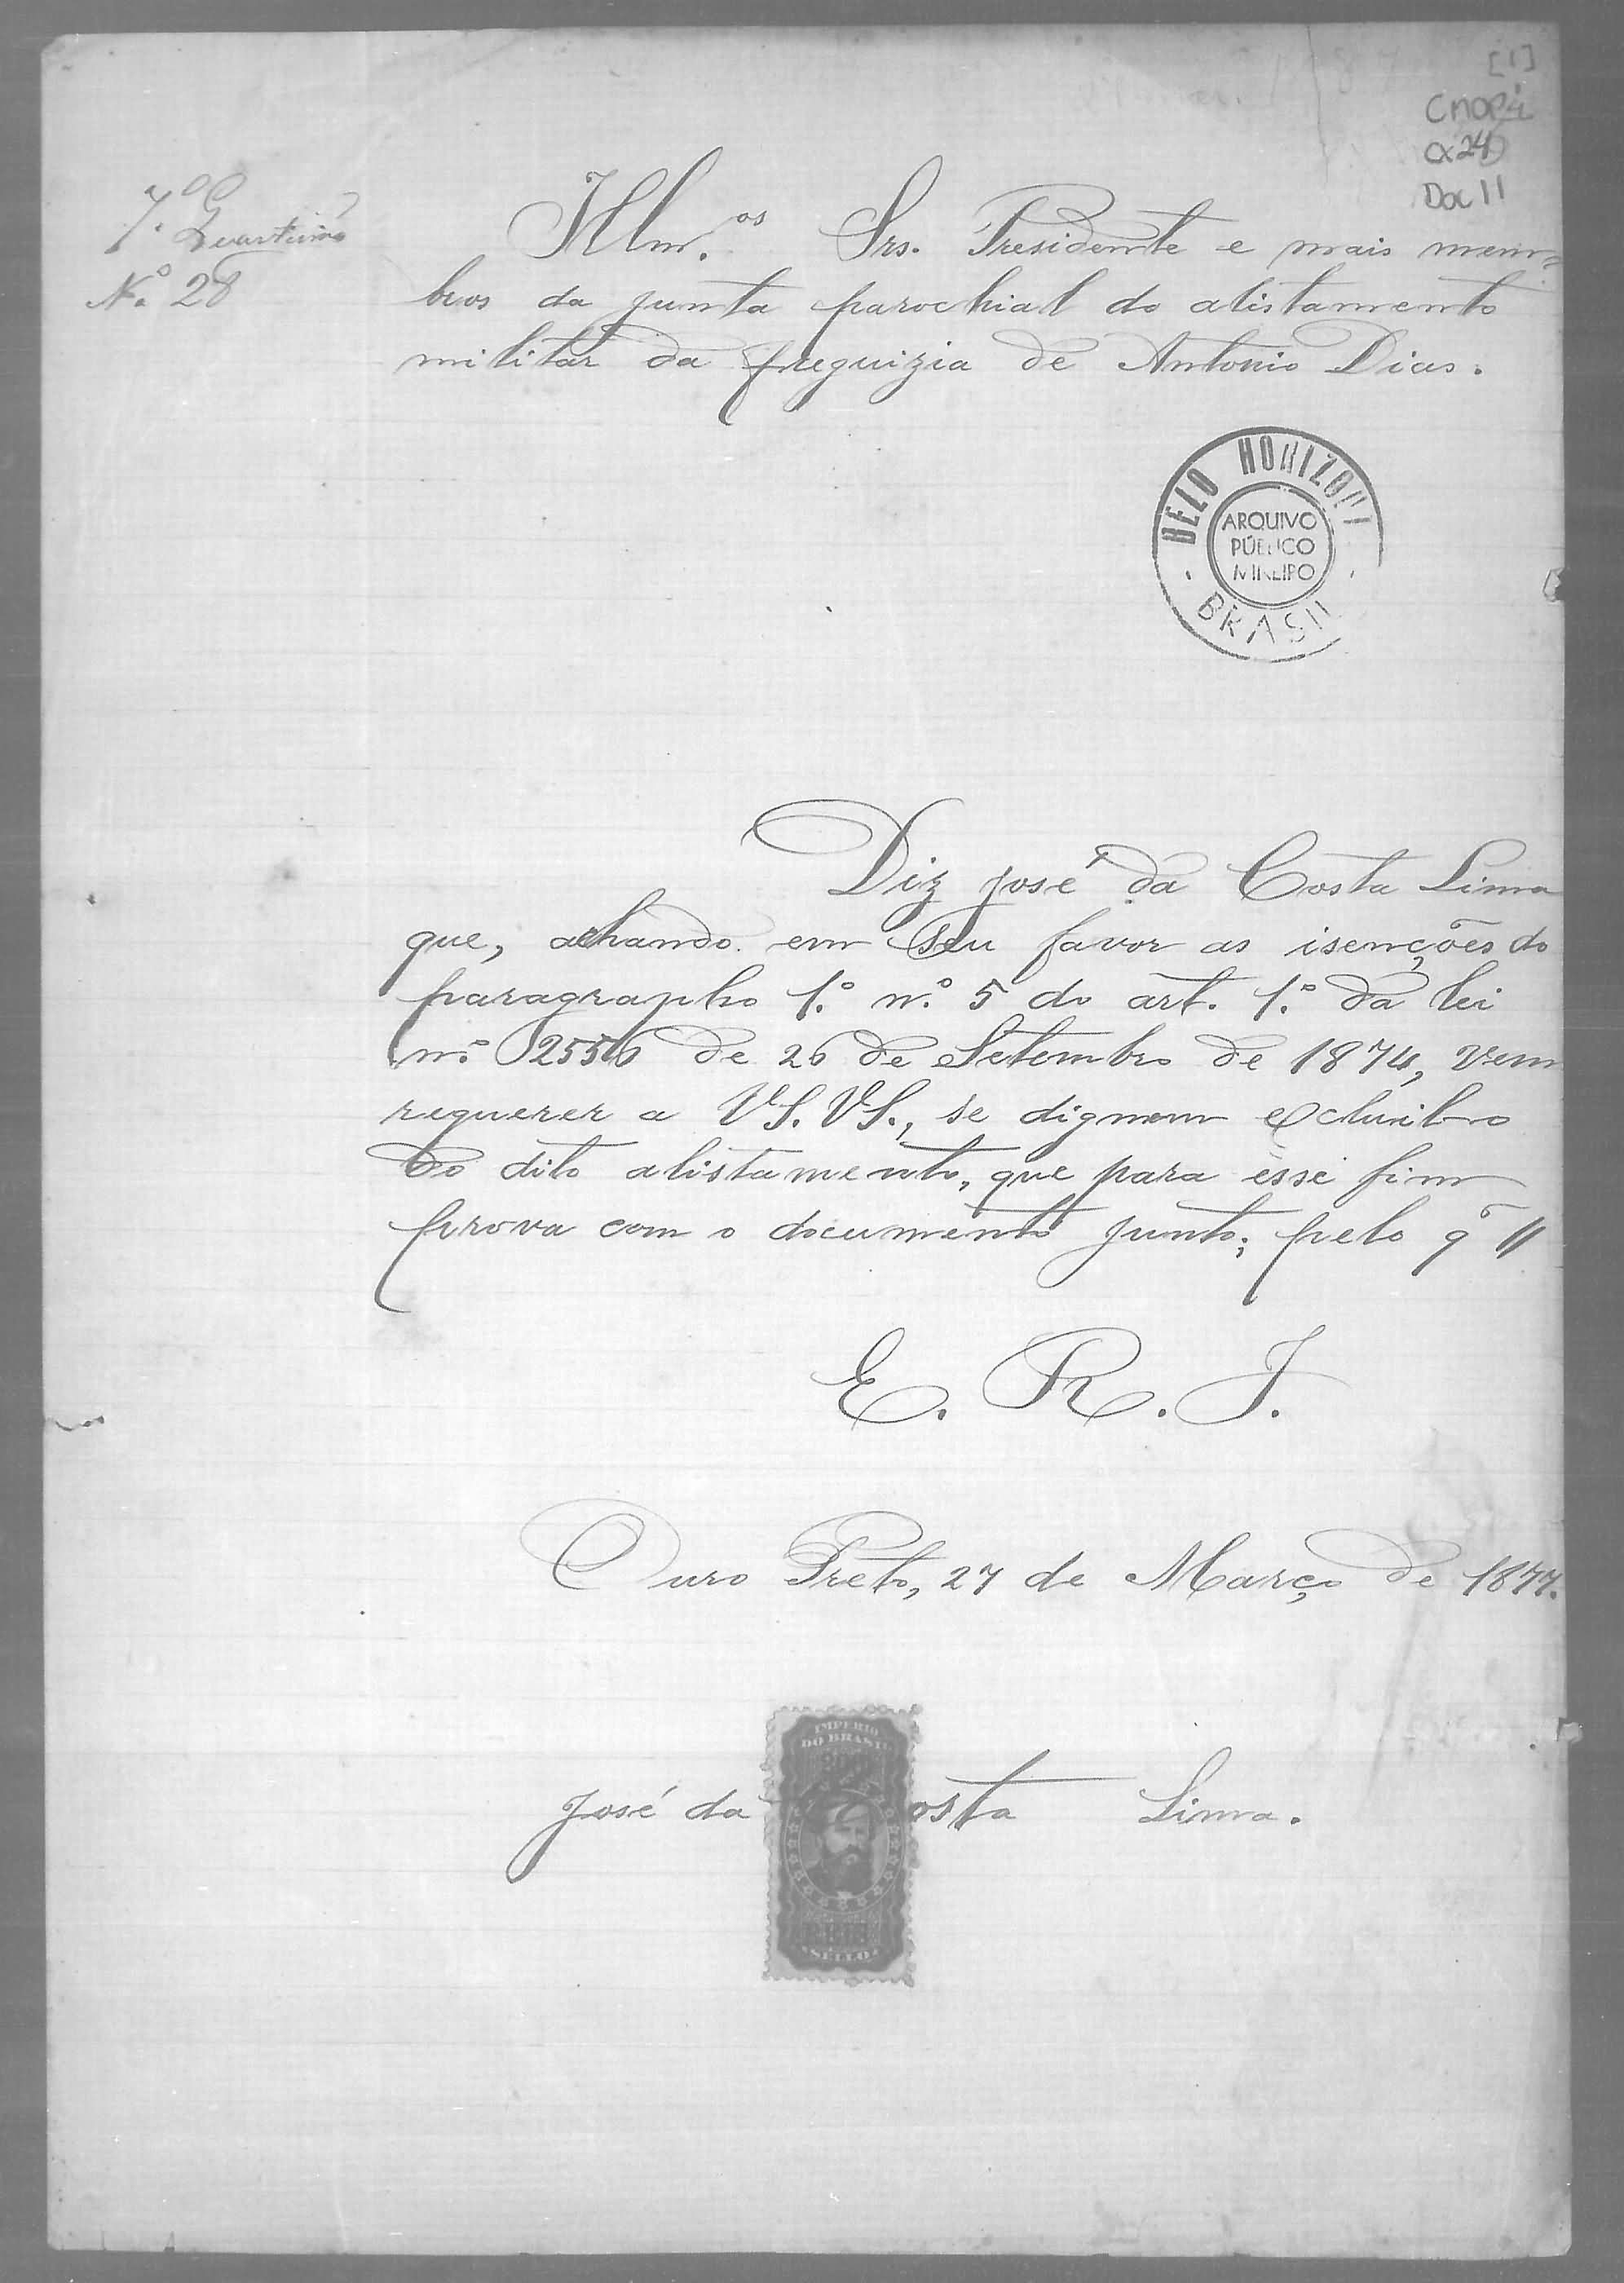 [1]
CMOP 4
CX 24
Doc 11
7.º Quarteirão
Nº 28
Illm.os Srs. Presidente e mais mem=
bros da junta parochial do alistamento
militar da freguizia de Antonio Dias.
BELO HORIZONT
ARQUIVO
PÚBLICO
MINEIRO
BRASIL
Diz José da Costa Lima
que, achando em seu favor as isenções do
paragrapho 1.º n.º 5 do art. 1.º da lei
n.º 2556 de 26 de Setembro de 1874, vem
requerer a VS. VS., se dignem excluil-o
do dito alistamento, que para esse fim
prova com o documento junto; pelo q̃ //
E. R. J.
Ouro Preto, 27 de Março de 1877.
IMPERIO
DO BRASIL
José da osta Lima.
SELLO